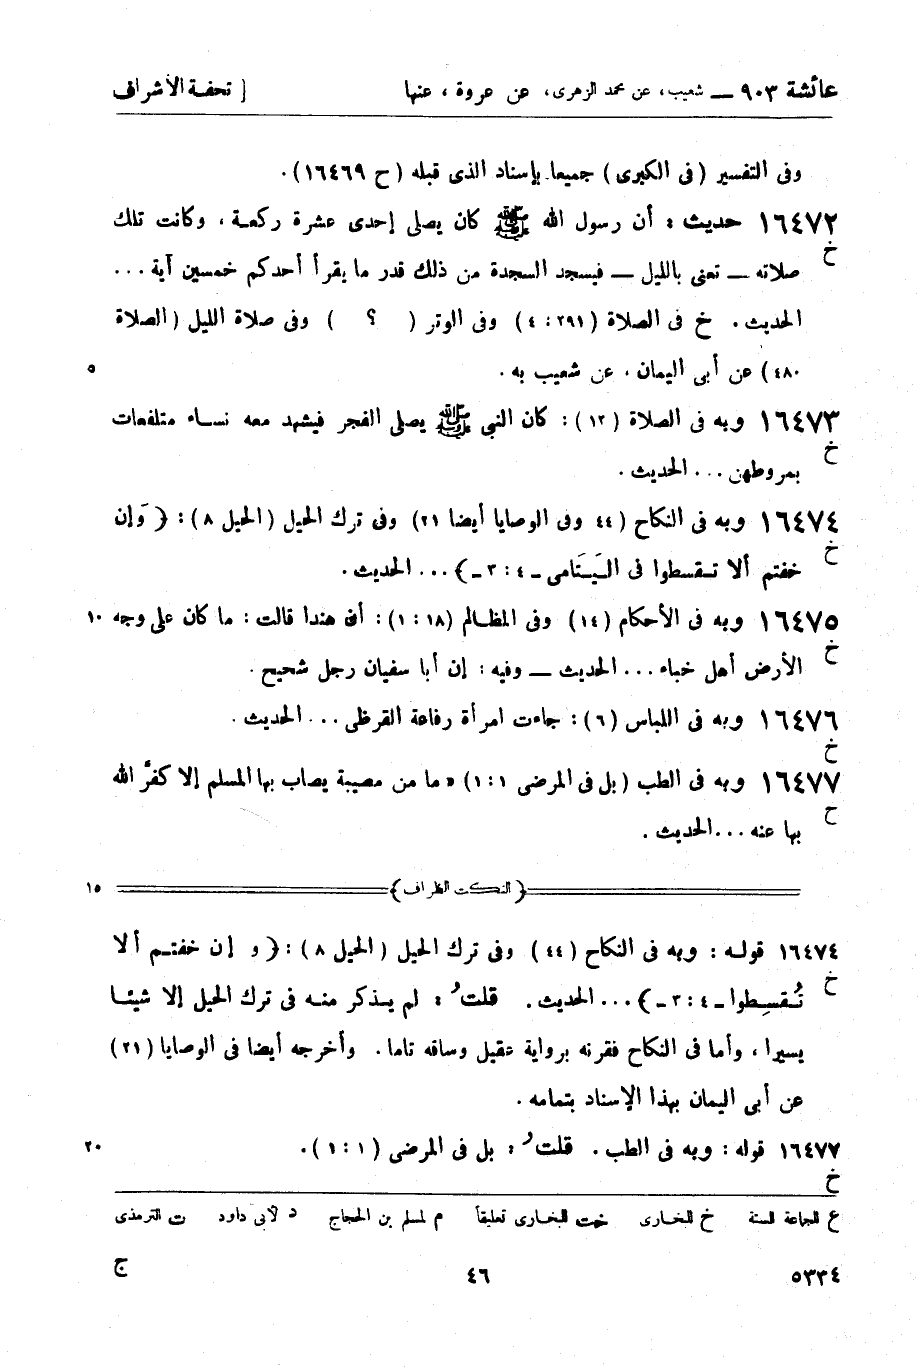 عائشة ٩٠٣ — شعيب، عن محمد الزهرى، عن عروة، عنها [ تحفة الأشراف
وفى التفسير (فى الكبرى) جميعا بإسناد الذى قبله (ح ١٦٤٦٩).
١٦٤٧٢ حديث: أن رسول الله ﷺ كان يصلى إحدى عشرة ركعة، وكانت تلك
خ
صلاته — تعنى بالليل — فيسجد السجدة من ذلك قدر ما يقرأ أحدكم خمسين آية ...
الحديث. خ فى الصلاة (٢٩١: ٤) وفى الوتر ( ؟ ) وفى صلاة الليل (الصلاة
٤٨٠) عن أبى اليمان، عن شعيب به. ٥
١٦٤٧٣ وبه فى الصلاة (١٣): كان النبى ﷺ يصلى الفجر فيشهد معه نساء متلفعات
خ
بمروطهن ... الحديث.
١٦٤٧٤ وبه فى النكاح (٤٤ وفى الوصايا أيضا ٢١) وفى ترك الحيل (الحيل ٨): {وَإن
خ
خفتم ألا تقسطوا فى اليَتَامى ـ ٤: ٣ ـ} ... الحديث.
١٦٤٧٥ وبه فى الأحكام (١٤) وفى المظالم (١٨: ١): أن هندا قالت: ما كان على وجه ١٠
خ
الأرض أهل خباء ... الحديث — وفيه: إن أبا سفيان رجل شحيح.
١٦٤٧٦ وبه فى اللباس (٦): جاءت امرأة رفاعة القرظى ... الحديث.
خ
١٦٤٧٧ وبه فى الطب (بل فى المرضى ١: ١) « ما من مصيبة يصاب بها المسلم إلا كفَّر الله
خ
بها عنه ... الحديث.
{النكت الظراف} ١٥
١٦٤٧٤ قوله: وبه فى النكاح (٤٤) وفى ترك الحيل (الحيل ٨): {و إن خفتم ألا
خ
تُقسِطوا ـ ٤: ٣ ـ} ... الحديث. قلتُ: لم يذكر منه فى ترك الحيل إلا شيئا
يسيرا، وأما فى النكاح فقرنه برواية عقيل وساقه تاما. وأخرجه أيضا فى الوصايا (٢١)
عن أبى اليمان بهذا الإسناد بتمامه.
١٦٤٧٧ قوله: وبه فى الطب. قلتُ: بل فى المرضى (١: ١). ٢٠
خ
ع للجماعة الستة خ للبخارى خت للبخارى تعليقاً م لمسلم بن الحجاج د لأبى داود ت للترمذى
٥٣٣٤ ٤٦ ج